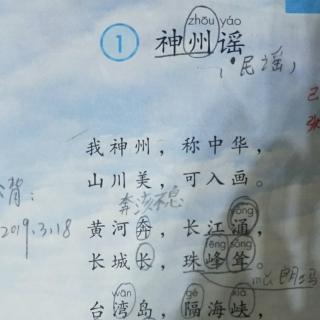 zhōu yáo
1 神州谣
(民谣)
我神州，称中华，
山川美，可入画。
背：
奔涉不息
2019.3.18
yǒng
黄河奔，长江涌，
fēng sǒng
长城长，珠峰耸。
朗玛
wān gé xiá
台湾岛，隔海峡，